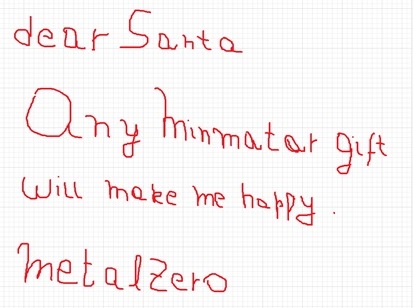 dear Santa
Any Minmatar gift
will make me happy.
metalzero